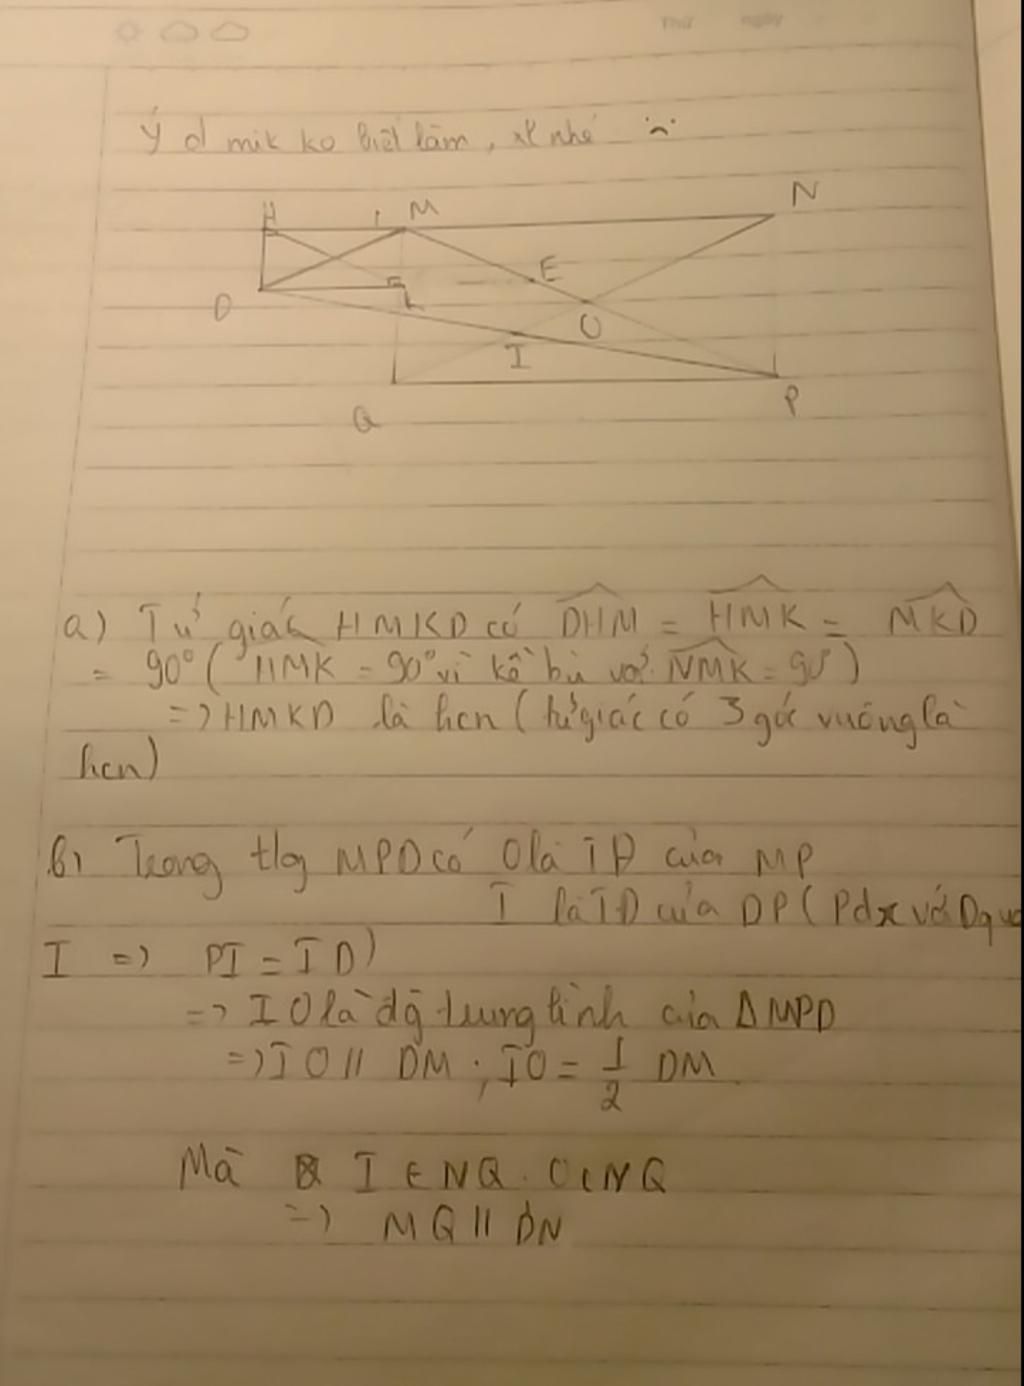 Thứ ngày
Ý d mik ko biết làm, xl nhé
H M N
D K E
I O
Q P
a) Tứ giác HMKD có DHM = HMK = MKD
= 90° ( HMK = 90° vì kề bù với NMK = 90° )
=> HMKD là hcn ( tứ giác có 3 góc vuông là
hcn)
b) Trong t/g MPD có O là TĐ của MP
I là TĐ của DP ( P đx với D qua
I => PI = ID )
=> IO là đg trung bình của Δ MPD
=> IO // DM ; IO = 1/2 DM
Mà I ∈ NQ . O ∈ NQ
=> MQ // DN